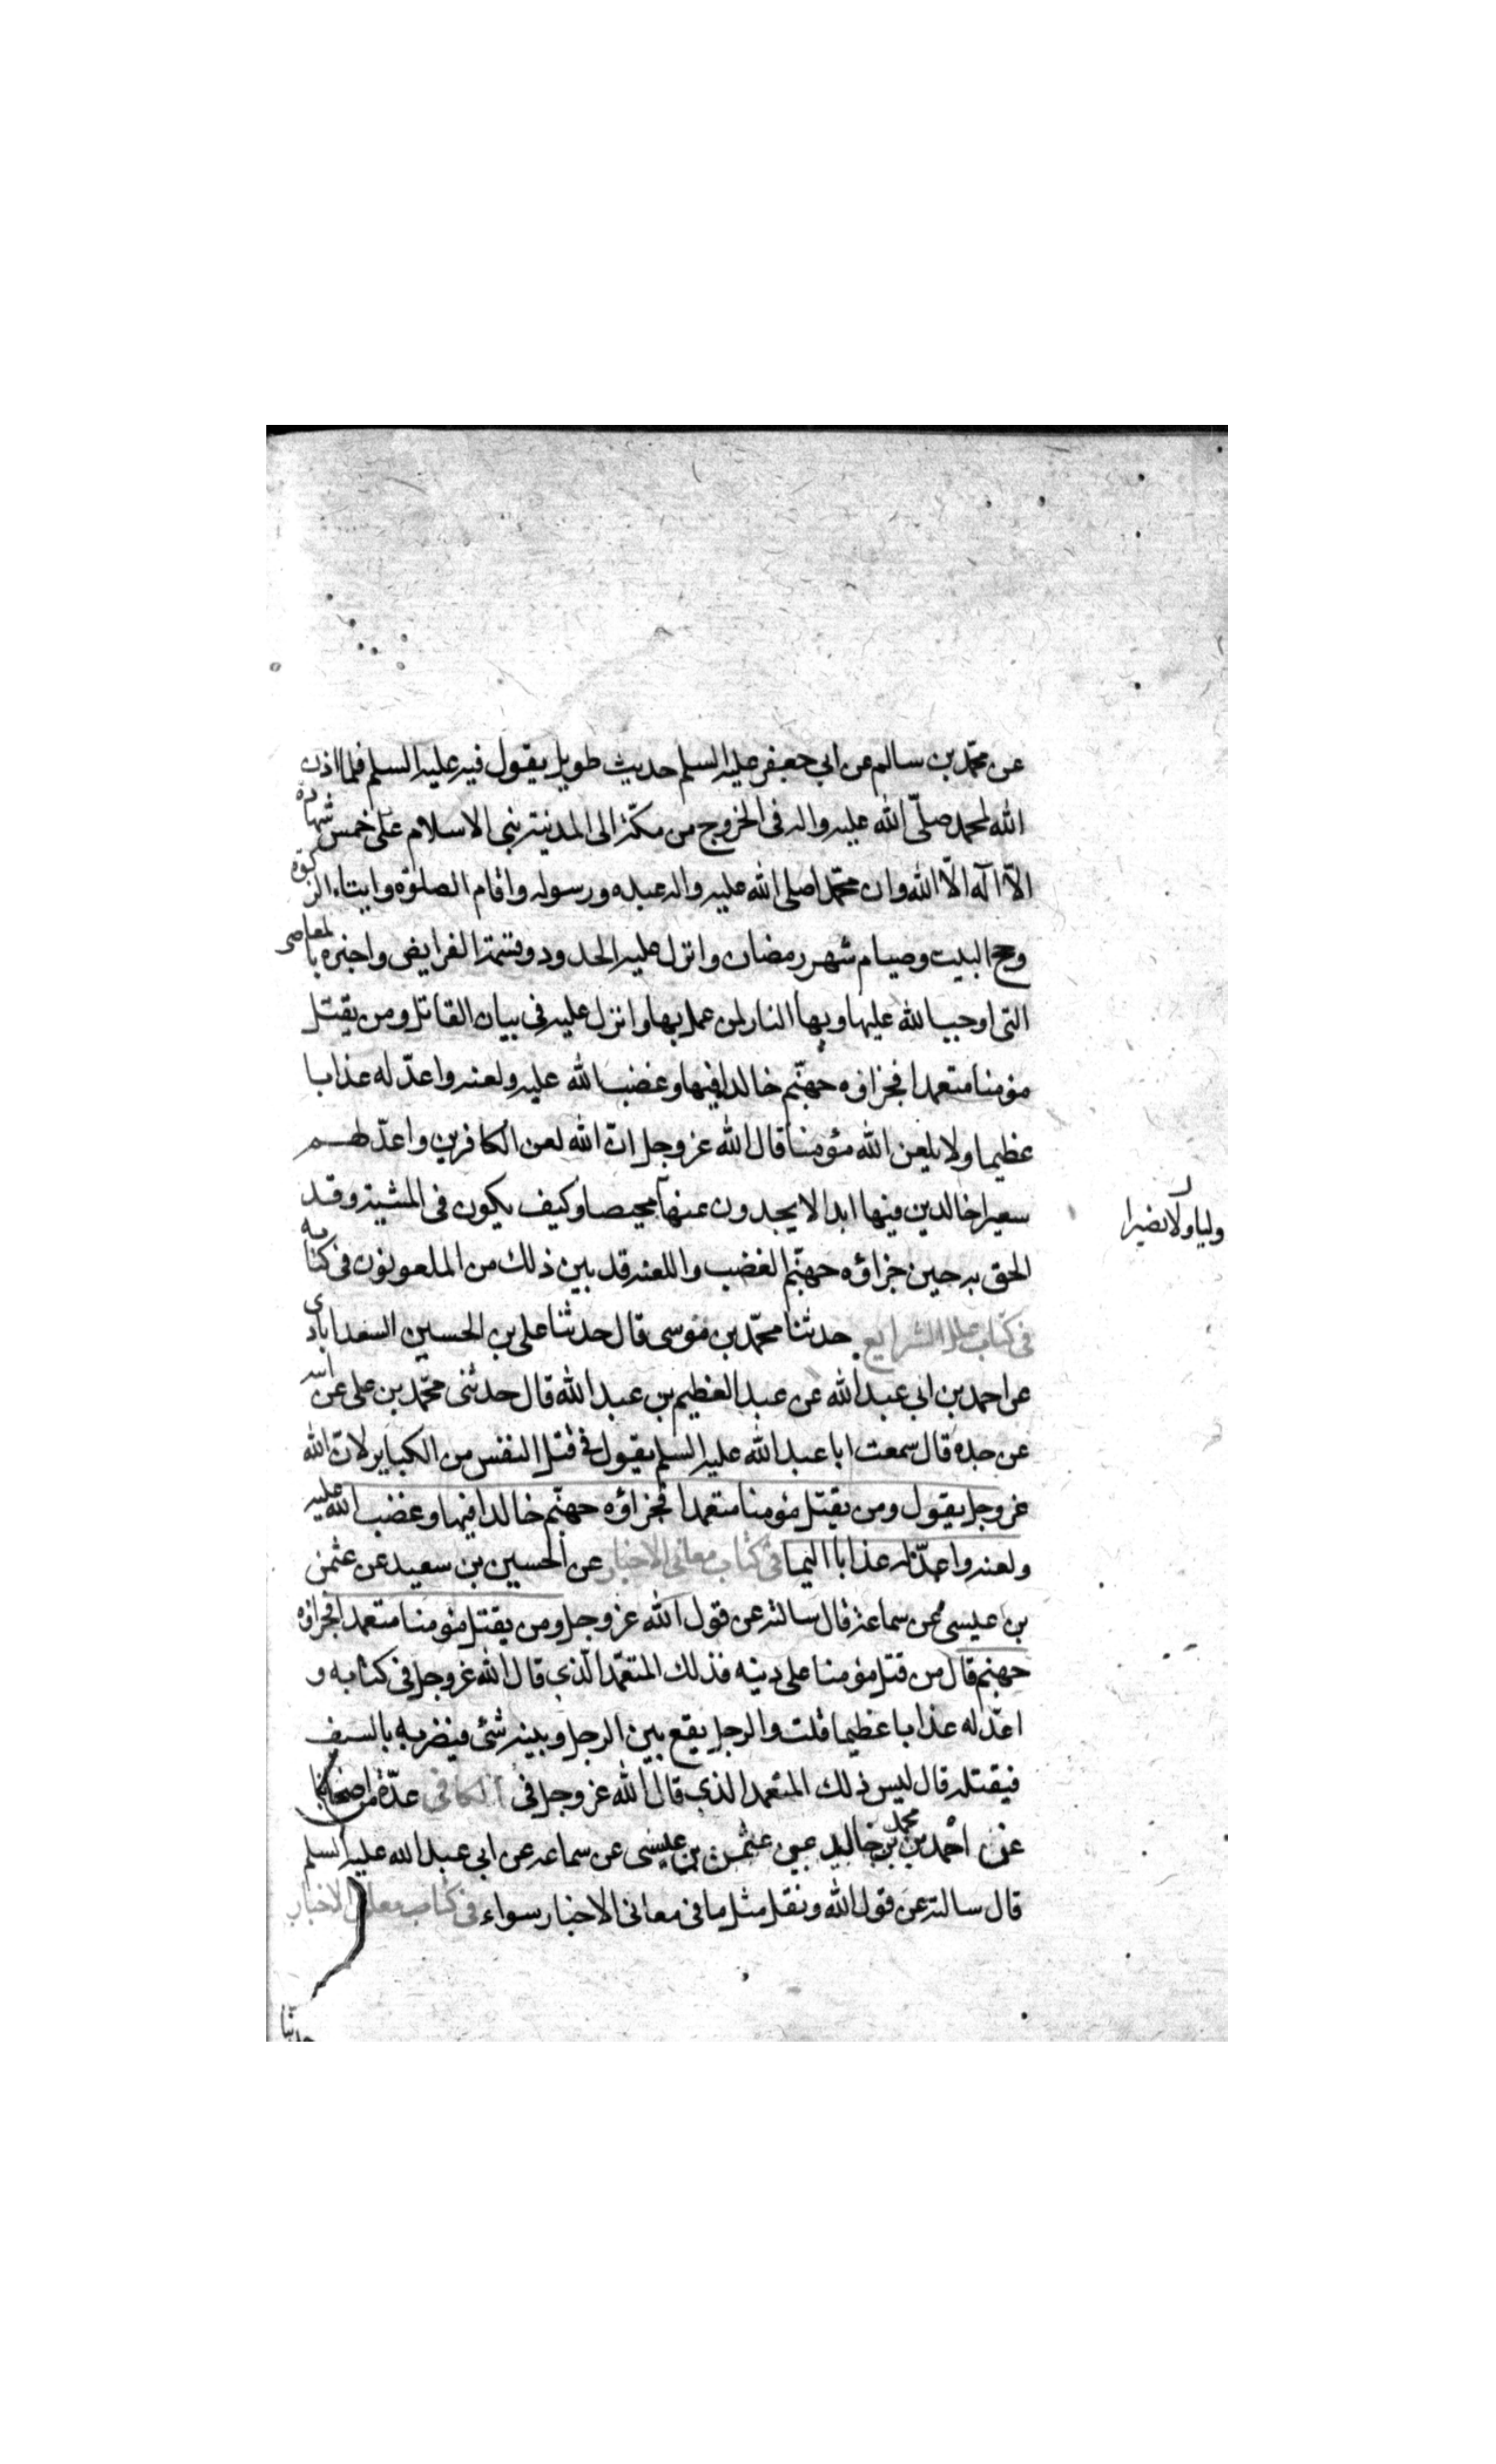 عن محمّد بن سالم عن ابي جعفر عليه السلم حديث طويل يقول فيه عليه السلم فلما اذن
الله لمحمد صلّى الله عليه واله فى الخروج من مكّة الى المدينة بنى الاسلام على خمس شهادة
الاّ اله الاّ الله وان محمّدا صلى الله عليه واله عبده ورسوله واقام الصلوة وايتاء الزكوة
وحج البيت وصيام شهر رمضان وانزل عليه الحدود وقسمة الفرايض واخبره بالمعاصى
التى اوجب الله عليها وبها النار لمن عمل بها وانزل عليه فى بيان القاتل ومن يقتل
مؤمنا متعمدا فجزاؤه جهنّم خالدا فيها وغضب الله عليه ولعنه واعدّ له عذابا
عظيما ولا يلعن الله مؤمنا قال الله عز وجل انّ الله لعن الكافرين واعدّ لهم
سعيرا خالدين فيها ابدا لا يجدون عنها محيصا وكيف يكون فى المشية وقد
وليا ولا نصيرا
الحق به حين جزاؤه جهنّم الغضب واللعنه قد بين ذلك من الملعونون فى كتابه
فى كتاب علل الشرايع حدثنا محمّد بن موسى قال حدثنا على بن الحسين السعدابادى
عن احمد بن ابى عبد الله عن عبد العظيم بن عبد الله قال حدثنى محمّد بن على عن ابيه
عن جده قال سمعت ابا عبد الله عليه السلم يقول فى قتل النفس من الكباير لانّ الله
عز وجل يقول ومن يقتل مؤمنا متعمدا فجزاؤه جهنّم خالدا فيها وغضب الله عليه
ولعنه واعدّ له عذابا اليما فى كتاب معانى الاخبار عن الحسين بن سعيد عن عثمن
بن عيسى عن سماعة قال سالته عن قول الله عز وجل ومن يقتل مؤمنا متعمدا فجزاؤه
جهنم قال من قتل مؤمنا على دينه فذلك المتعمّد الّذى قال الله عز وجل فى كتابه و
اعدّ له عذابا عظيما قلت والرجل يقع بين الرجل وبينه شئ فيضربه بالسيف
فيقتله قال ليس ذلك المتعمد الذى قال الله عز وجل فى الكافى عدّة من اصحابنا
عن احمد بن محمد بن خالد عن عثمن بن عيسى عن سماعه عن ابى عبد الله عليه السلم
قال سالته عن قول الله ونقل مثل ما فى معانى الاخبار سواء فى كتاب معانى الاخبار